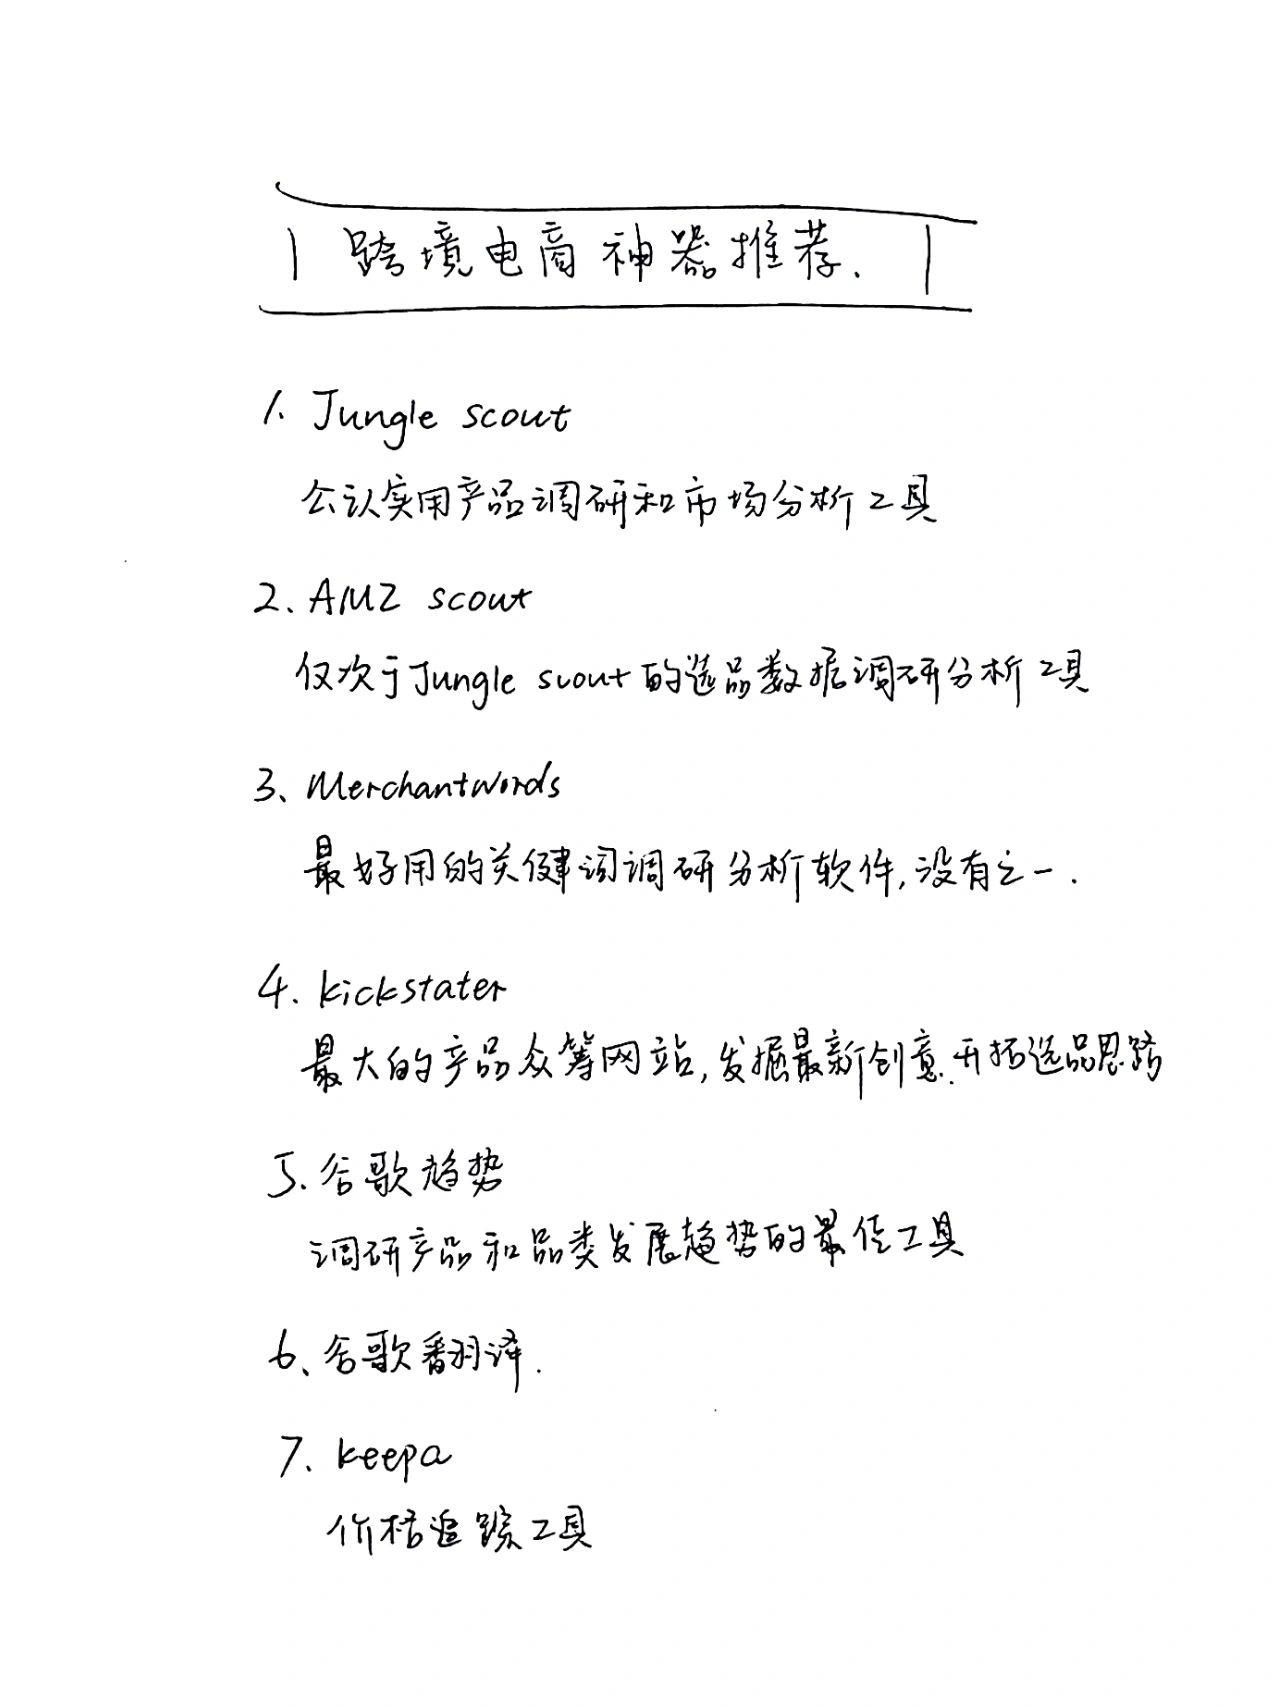 跨境电商神器推荐.
1. Jungle scout
公认实用产品调研和市场分析工具
2、AMZ scout
仅次于Jungle scout的选品数据调研分析工具
3、Merchantwords
最好用的关健词调研分析软件,没有之一.
4. kickstater
最大的产品众筹网站,发掘最新创意.开拓选品思路
5.谷歌趋势
调研产品和品类发展趋势的最佳工具
6、谷歌翻译.
7. keepa
价格追踪工具